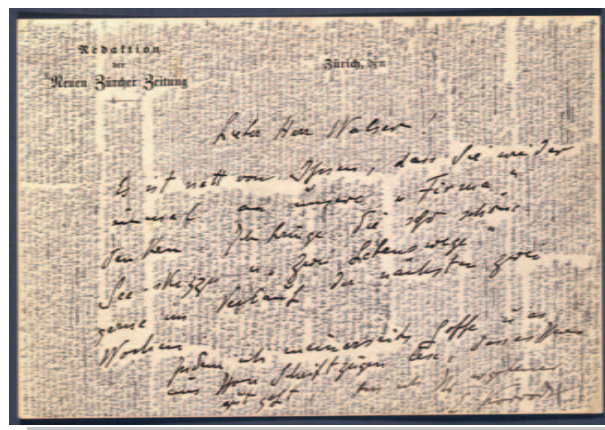 Redaktion
der
Neuen Zürcher Zeitung
Zürich, den
Lieber Herr Walser!
Es ist nett von Ihnen, dass Sie wieder
einmal an unsere „Firma"
denken. Ich bringe die sehr schöne
See-skizze u. „Zwei Lebenswege"
gerne im Verlauf der nächsten zwei
Wochen
Indem ich meinerseits hoffe u. es
aus Ihren Schriftzügen lese, dass es Ihnen
gut geht, bin ich Ihr ergebener